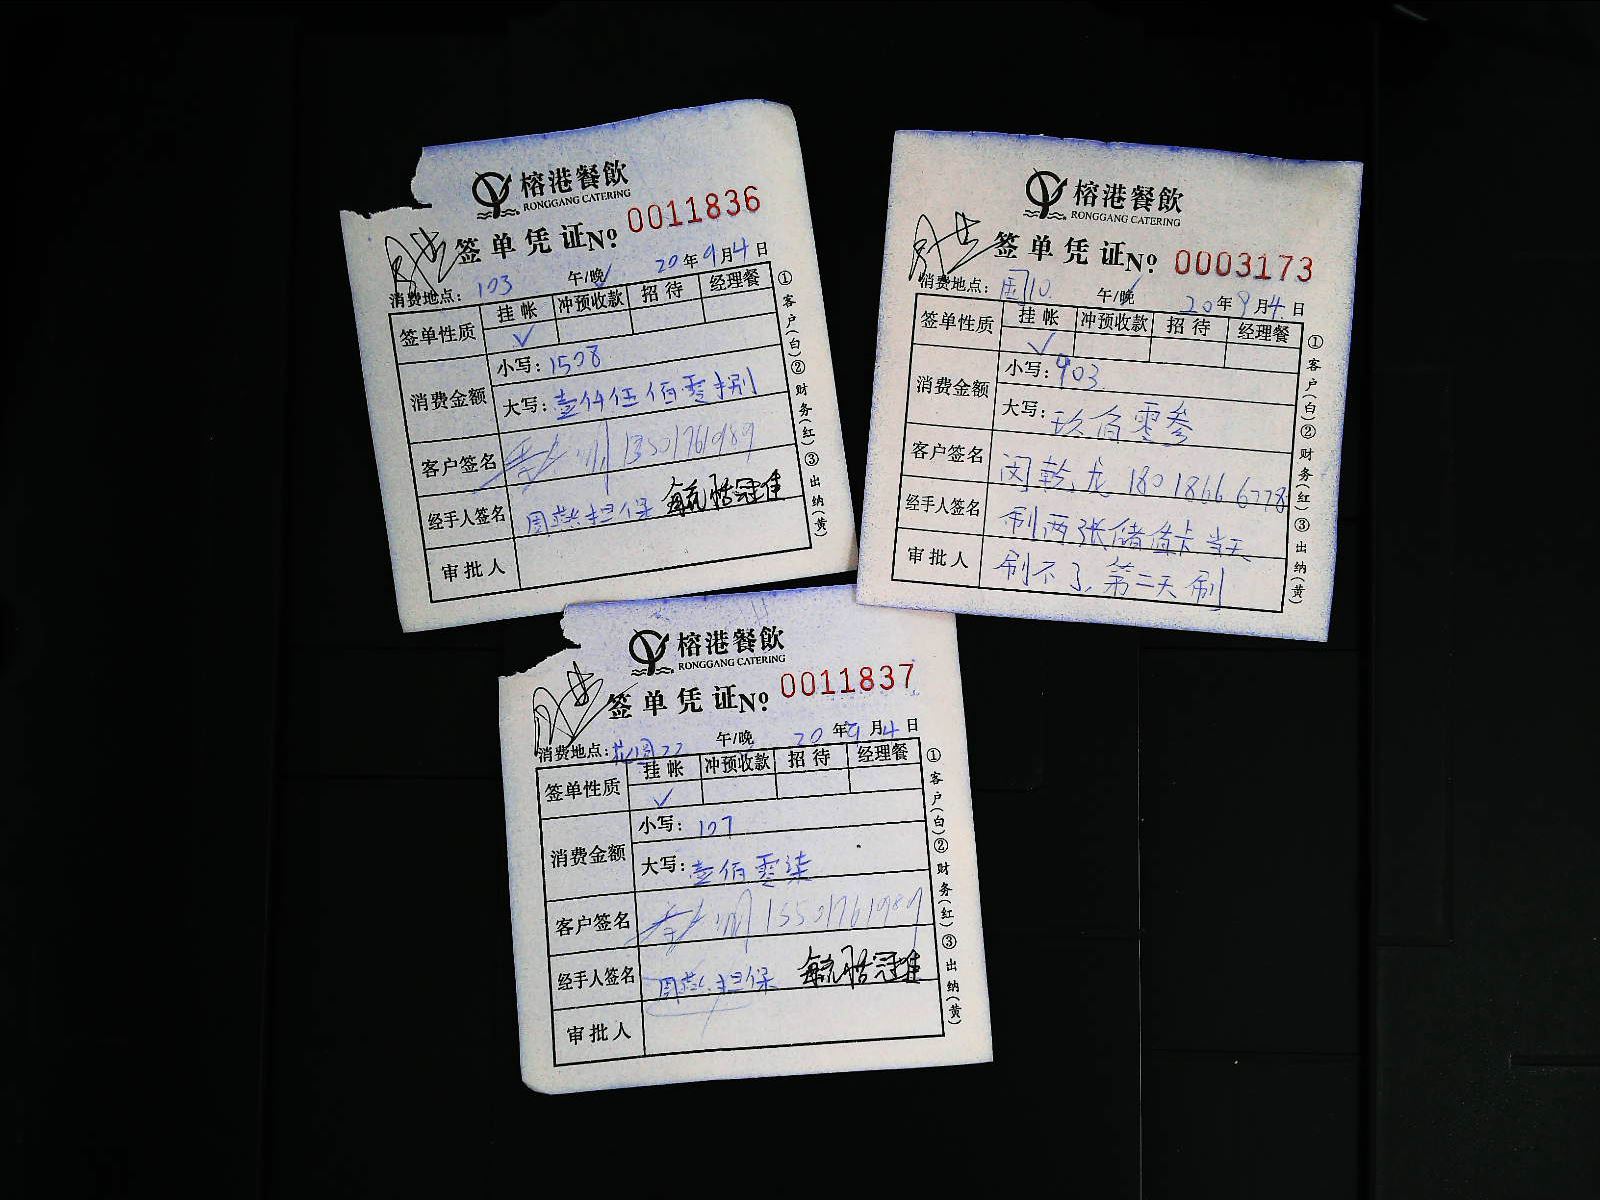 榕港餐飲
RONGGANG CATERING
签单凭证 Nº 0011836
消费地点: 103 午/晚 20年9月4日
签单性质 挂帐 冲预收款 招待 经理餐
✓
消费金额 小写: 1508
大写: 壹仟伍佰零捌
客户签名 13501761989
经手人签名 周燕担保
审批人
①客户(白)②财务(红)③出纳(黄)
榕港餐飲
RONGGANG CATERING
签单凭证 Nº 0003173
消费地点: 国10 午/晚 20年9月4日
签单性质 挂帐 冲预收款 招待 经理餐
✓
消费金额 小写: 903
大写: 玖佰零叁
客户签名 闵乾龙 18018666778
经手人签名 刷两张储值卡当天
审批人 刷不了,第二天刷
①客户(白)②财务(红)③出纳(黄)
榕港餐飲
RONGGANG CATERING
签单凭证 Nº 0011837
消费地点: 花园22 午/晚 20年9月4日
签单性质 挂帐 冲预收款 招待 经理餐
✓
消费金额 小写: 107
大写: 壹佰零柒
客户签名 13501761989
经手人签名 周燕担保
审批人
①客户(白)②财务(红)③出纳(黄)